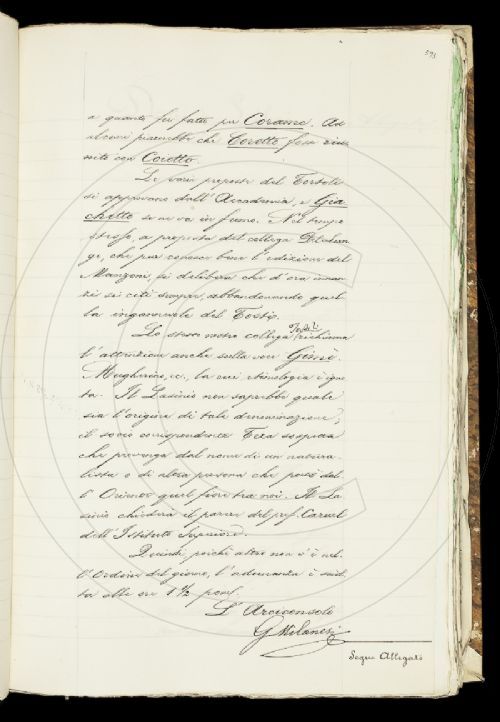 391
a quanto fu fatto per Corame. Ad
alcuni piacerebbe che Corotto fosse riu-
nito con Corotto.
Le voci proposte dal Tortoli
si approvano dall'Accademia, e Gia
chetto se ne va in fumo. Nel tempo
stesso, a proposta del collega
che, per conoscer bene l'edizione del
Manzoni, si delibera che d'ora innan-
zi si citi sempre, abbandonando quel-
la ingannevole del
Lo stesso nostro collega Tortoli richiama
l'attenzione anche sulla voce Ginsi.
Margherina, ec., la cui etimologia è igno
ta. Il Lasinio non saprebbe quale
sia l'origine di tale denominazione;
il socio corrispondente Teza sospetta
che provenga dal nome di un natura-
lista o di altra persona che portò dal-
l'Oriente quel fiore tra noi. Il La
sinio chiederà il parere del prof. Caruel
dell'Istituto Superiore.
Quindi, poichè altro non v'è nel-
l'Ordine del giorno, l'adunanza è sciol-
ta alle ore 1 ½ pom.
L'Arciconsolo
G Milanesi
Segue Allegato